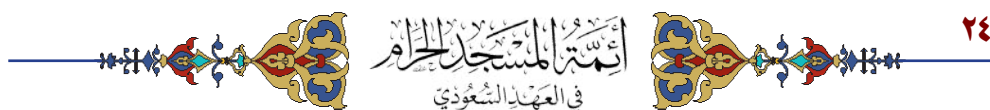 ٢٤
أئمة المسجد الحرام
في العهد السعودي